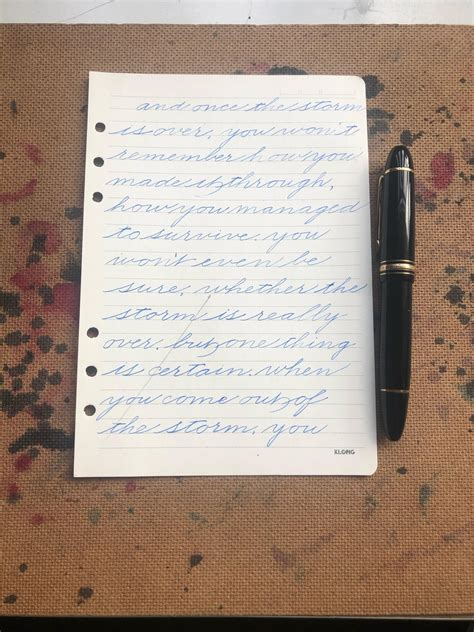 and once the storm
is over, you won't
remember how you
made it through,
how you managed
to survive. you
won't even be
sure, whether the
storm is really
over. but one thing
is certain. when
you come out of
the storm, you
KLONG